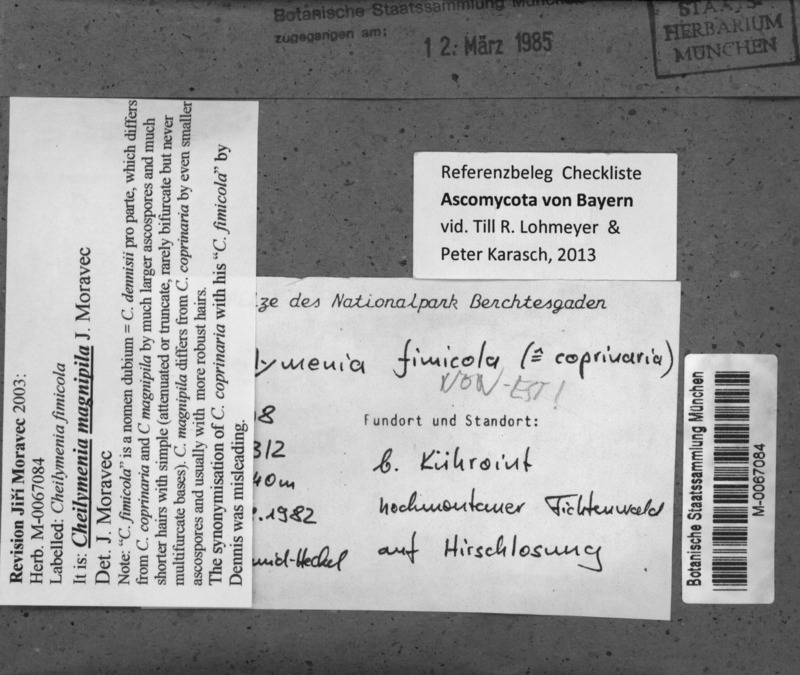 Botanische Staatssammlung München
zugegangen am:
12. März 1985
STAATS-
HERBARIUM
MÜNCHEN
Revision Jiří Moravec 2003:
Herb. M-0067084
Labelled: Cheilymenia fimicola
It is: Cheilymenia magnipila J. Moravec
Det. J. Moravec
Note: "C. fimicola" is a nomen dubium = C. dennisii pro parte, which differs
from C. coprinaria and C magnipila by much larger ascospores and much
shorter hairs with simple (attenuated or truncate, rarely bifurcate but never
multifurcate bases). C. magnipila differs from C. coprinaria by even smaller
ascospores and usually with more robust hairs.
The synonymisation of C. coprinaria with his "C. fimicola" by
Dennis was misleading.
Referenzbeleg Checkliste
Ascomycota von Bayern
vid. Till R. Lohmeyer &
Peter Karasch, 2013
lze des Nationalpark Berchtesgaden
lymenia fimicola (≙ coprinaria)
NON-EST!
8
Fundort und Standort:
3/2
b. Kühroint
40m
hochmontaner Fichtenwald
.1982
auf Hirschlosung
mid-Heckel
Botanische Staatssammlung München
M-0067084